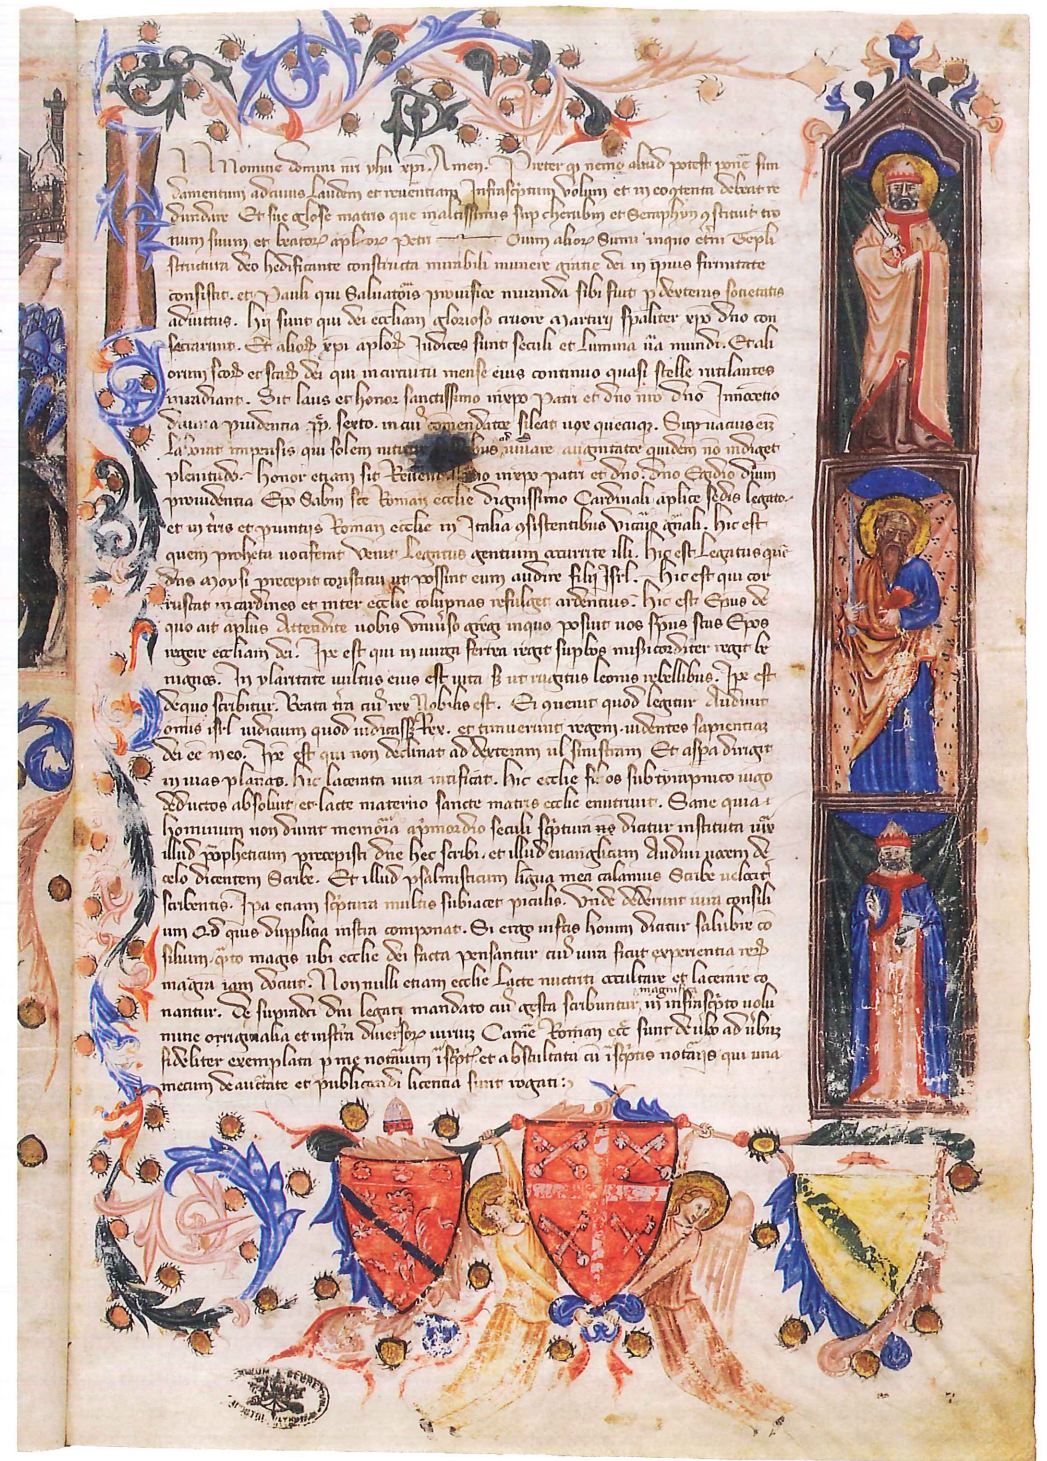 In Nomine domini nri yhu xpi Amen. Preter qd nemo aliud potest pone fun
damentum ad cuius laudem et reverentiam Infrascptum volum et in co contenta debeat re
dundare Et sue gliose matris que in altissimis sup cherubin et Seraphyn gstituit tro
num suum. et beatoru aplor Petri Ovium alior Sumi inquo etni Tepli
structura deo hedificante constructa mirabili munere gratie dei in ipius firmitate
consistit. et Pauli qui Salvatois sibi fuit p dexteris societatis
adiuntus. Hii sunt qui dei eccliam glorioso cruore Martirii spaliter xpo dno con
secrarunt. Et alior xpi aplor Iudices sunt seculi et lumina va mundi. Et ali
orum scor et scar dei qui in circuitu mense eius continuo quasi stelle rutilantes
irradiant. Sit laus et honor sanctissimo in xpo Patri et dno nro dno Innocetio
divina pvidentia pp sexto. in cui comendatoe sileat vox quecuiqz. Supvacuis eiz
laboriat impensis qui solem augmentatoe quidem no indiget
plenitudo. Honor etiam sit in xpo patri et dno. dno Egidio divin
providentia Epo Sabin sce Roman ecclie dignissimo Cardinali aplice sedis legato.
et in tris et pvintiis Roman ecclie in Italia gsistentibus Vicario gnali. Hic est
quem propheta vociferat venit legatus gentium occurrite illi. Hic est Legatus que
dns Moysi precepit constitui ut possint eum audire filii Isrl. Hic est qui cor
ruscat in cardines et inter ecclie columpnas refulget ardentius. Hic est Epus de
quo ait aplus Attendite vobis universo gregi inquo posuit vos spus scus Epos
regere eccliam dei. Ipe est qui in virga ferrea regit supbos misicorditer regit be
nignos. In ylaritate vultus eius est vita et ut rugitus leonis rebellibus. Ipe est
dequo scribitur. Beata tra cui rex Nobilis est. Et quenit quod legitur Audivit
omis isrl iudicium quod iudicasset Rex. et timuerunt regem. videntes sapientiam
dei ee in eo. Ipe est qui non declinat ad dexteram vl sinistram Et aspa dirigit
in vias planas. Hic lacerata iura ratificat. Hic ecclie filios sub tyrapnico iugo
deductos absolvit. et lacte materno sancte matris ecclie enutrivit. Sane quia
hominum non durat memoria a pmordio seculi scptura nos dicitur instituta iux
illud ppheticum precepisti dne hec scribi. et illud evanglicum Audivi vocem de
celo dicentem Scribe. Et illud psalmisticum lingua mea calamus Scribe velocit
scribentis. Ipa etiam scptura multis subiacet piculis. Unde dederunt iura consili
um Qd quis dupplicia instra componat. Si ergo iustis homini dicitur salubre co
silium. qto magis ubi ecclie dei facta pensantur cui iura sicut experientia reru
magra iam docuit. Non nulli etiam ecclie lacte nutriti occultare et lacerare co
nantur. De supradci dni legati mandato cui gesta magnifica scribuntur, in infrascpto volu
mine origiinalia et instra diversor iurium Camere Roman ecc sunt de vbo ad vbum
fideliter exemplata p me notarium iscptu et abscultata cu iscptis notariis qui una
mecum de auctate et publicandi licentia sunt rogati: